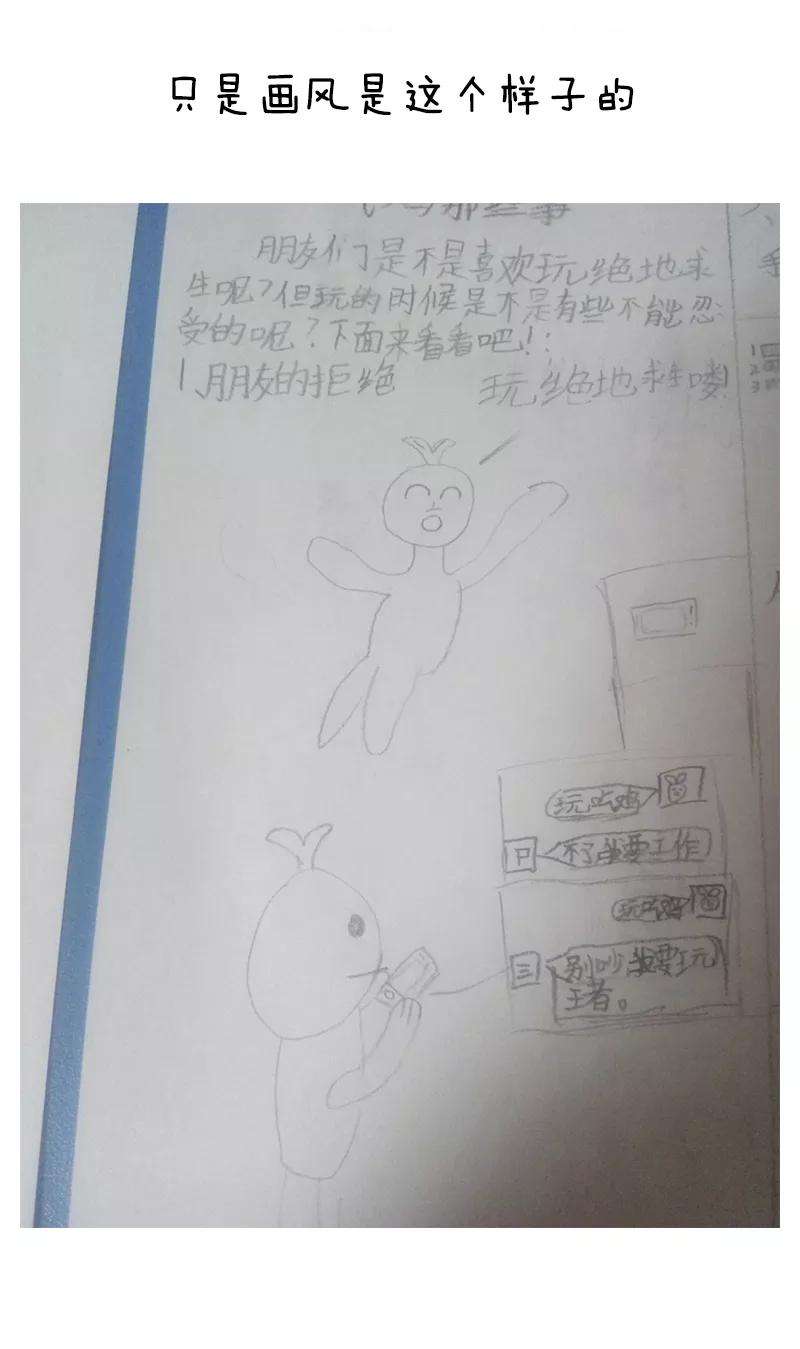 只是画风是这个样子的
那些事
朋友们是不是喜欢玩绝地求
生呢?但玩的时候是不是有些不能忍
受的呢?下面来看看吧!:
1、朋友的拒绝
玩绝地求生喽!
玩吃鸡
不了我要工作
玩吃鸡
别吵我要玩
王者。
1
2
3